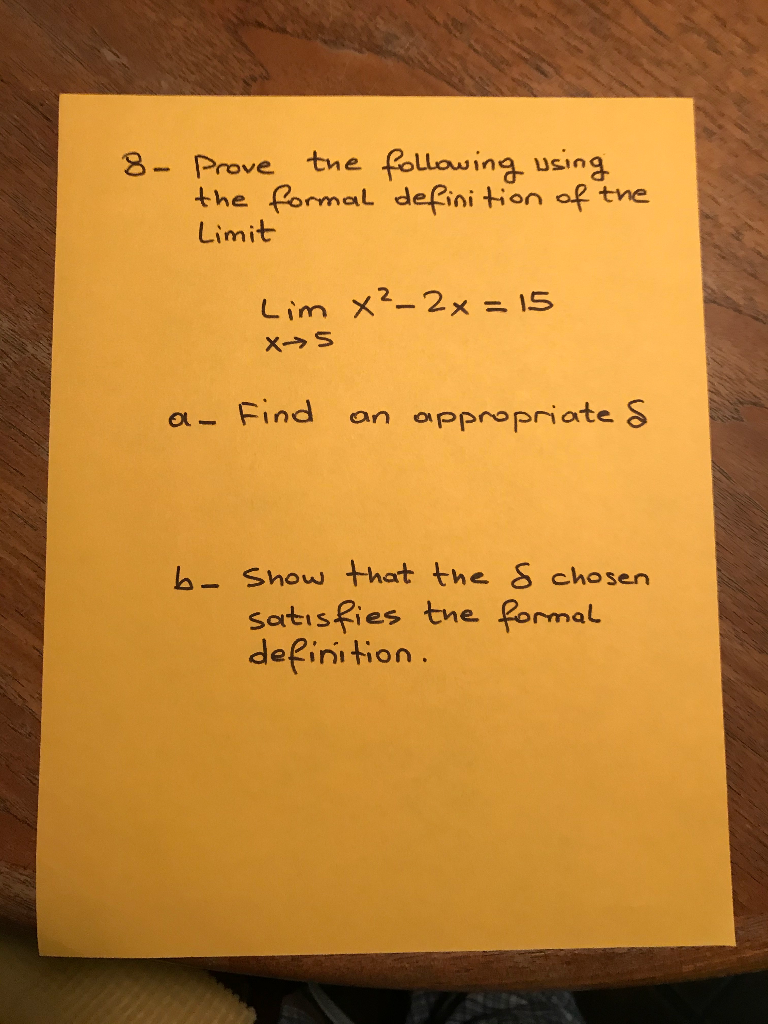 8- Prove the following using
the formal definition of the
Limit
Lim x²-2x = 15
x→5
a- Find an appropriate δ
b- Show that the δ chosen
satisfies the formal
definition.